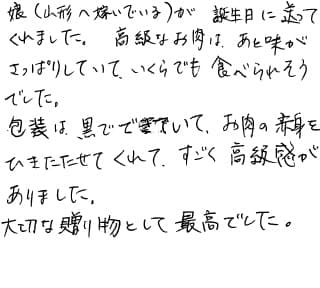 娘(山形へ嫁いでいる)が 誕生日に送って
くれました。 高級なお肉は、あと味が
さっぱりしていて、いくらでも食べられそう
でした。
包装は黒でできていて、お肉の赤身を
ひきたたせてくれて、すごく高級感が
ありました。
大切な贈り物として最高でした。